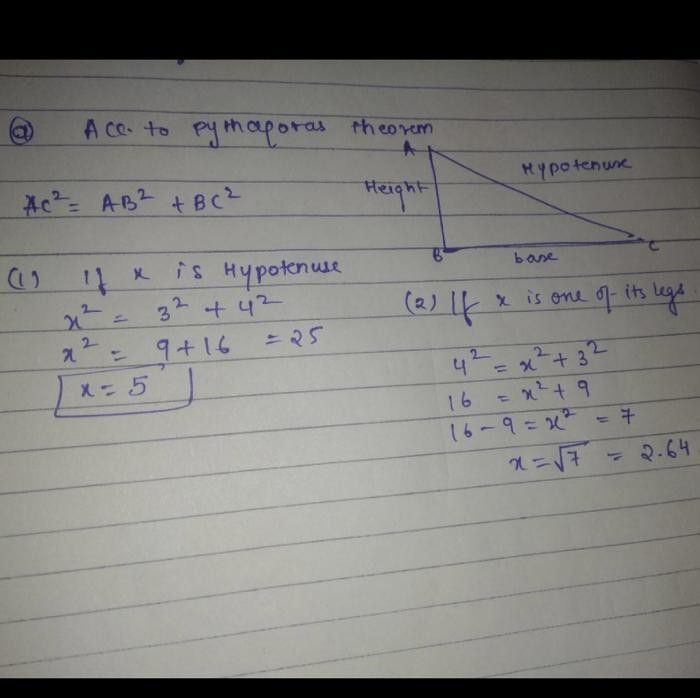 (a) Acc. to pythaporas theorem
AC² = AB² + BC²
A
Hypotenuse
Height
B
base
C
(1) If x is Hypotenuse
x² = 3² + 4²
x² = 9 + 16 = 25
x = 5
(2) If x is one of its legs.
4² = x² + 3²
16 = x² + 9
16 - 9 = x² = 7
x = √7 = 2.64